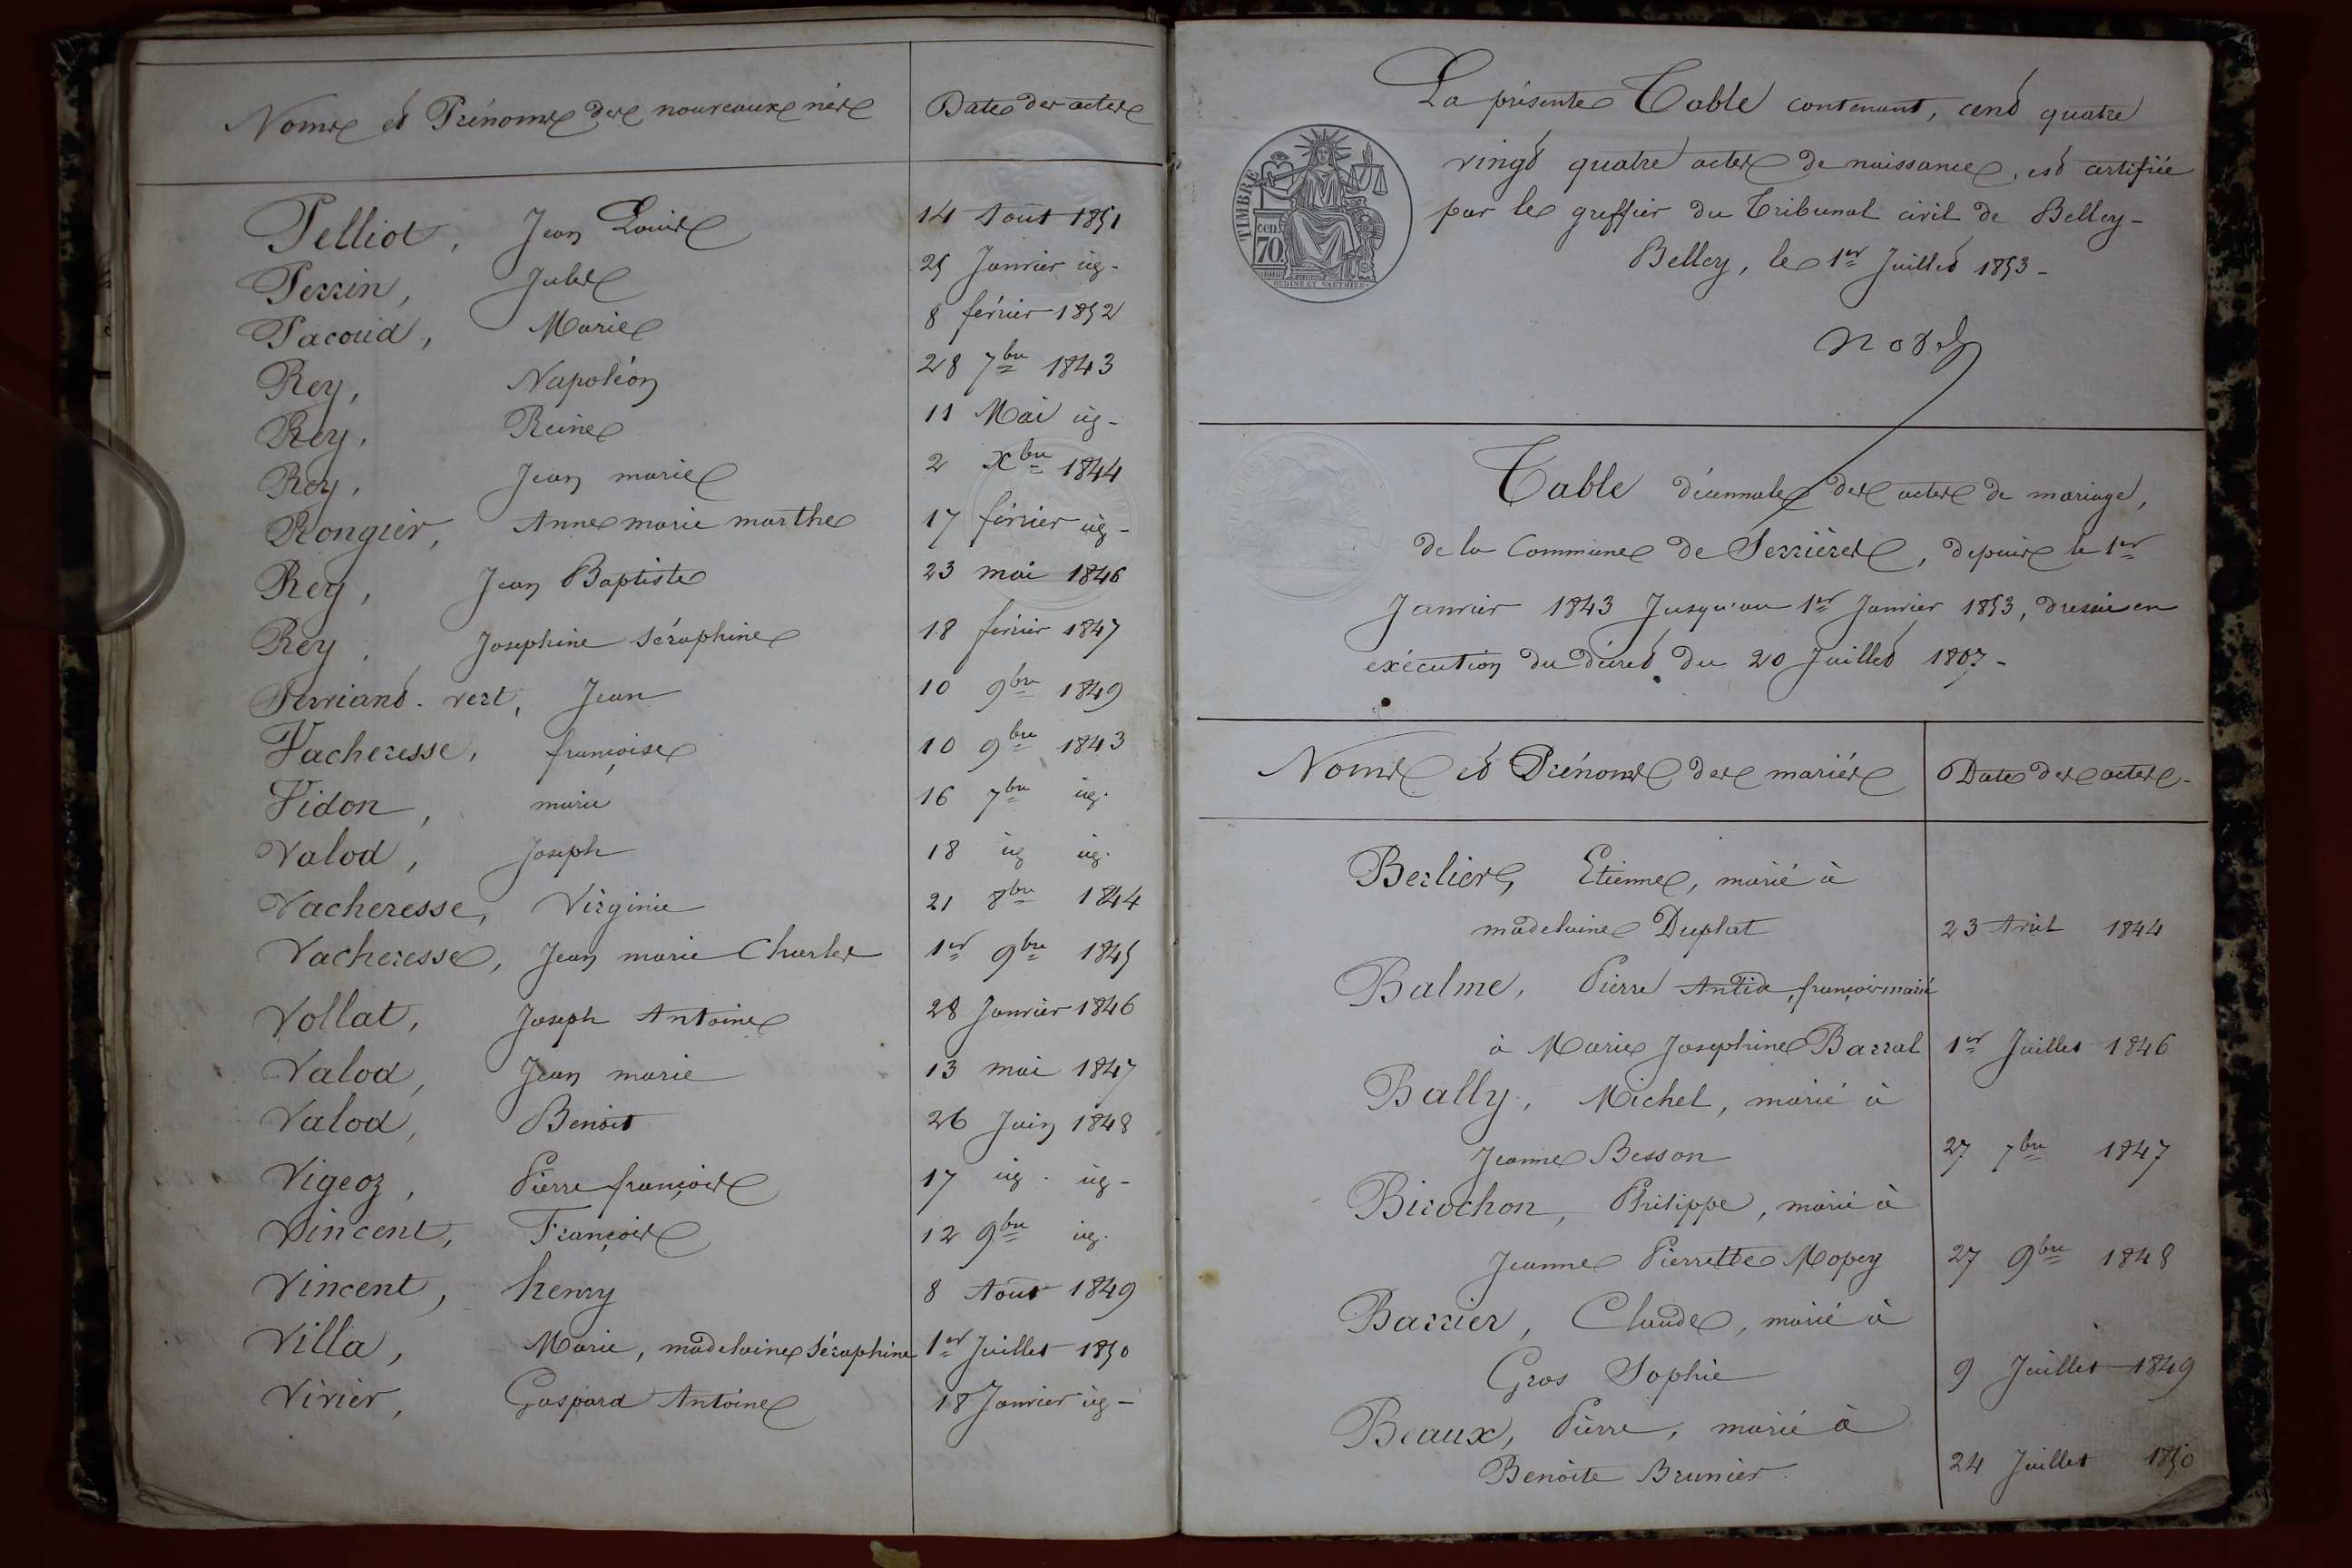 Noms et Prénoms des nouveaux nés Date des actes
Pelliot, Jean Louis 14 Aout 1851
Perrin, Jules 25 Janvier ig-
Pacoud, Marie 8 février 1852
Rey, Napoléon 28 7bre 1843
Rey, Reine 11 Mai ig-
Rey, Jean marie 2 Xbre 1844
Rongier, Anne marie marthe 17 février ig-
Rey, Jean Baptiste 23 mai 1846
Rey, Josephine Séraphine 18 février 1847
vert, Jean 10 9bre 1849
Vacheresse, françoise 10 9bre 1843
Vidon, marie 16 7bre ig.
Valod, Joseph 18 ig ig.
Vacheresse, Virginie 21 8bre 1844
Vacheresse, Jean marie Charles 1er 9bre 1845
Vollat, Joseph Antoine 28 Janvier 1846
Valod, Jean marie 13 mai 1847
Valod, Benoit 26 Juin 1848
Vigeoz, Pierre françois 17 ig. ig-
Vincent, François 12 9bre ig.
Vincent, henry 8 Aout 1849
Villa, Marie, madelaine Séraphine 1er Juillet 1850
Vivier, Gaspard Antoine 18 Janvier ig-
La présente Table contenant, cent quatre
vingt quatre actes de naissance, est certifiée
par le greffier du Tribunal civil de Belley-
Belley, le 1er Juillet 1853-
TIMBRE
cen.
70
OUDINE ET VAUTHIER
Table décennale des actes de mariage,
de la Commune de Serrières, depuis le 1er
Janvier 1843 Jusqu'au 1er Janvier 1853, dressée en
exécution du décret du 20 Juillet 1807-
Noms et Prénoms des mariés Date des actes-
Berlier, Etienne, marié à
madelaine Duplat 23 Avril 1844
Balme, Pierre Antide, françois marié
à Marie Josephine Barral 1er Juillet 1846
Bally, Michel, marié à
Jeanne Besson 27 7bre 1847
Birochon, Philippe, marié à
Jeanne Pierrette Mopey 27 9bre 1848
Barrier, Claude, marié à
Gros Sophie 9 Juillet 1849
Beaux, Pierre, marié à
Benoite Brunier. 24 Juillet 1850